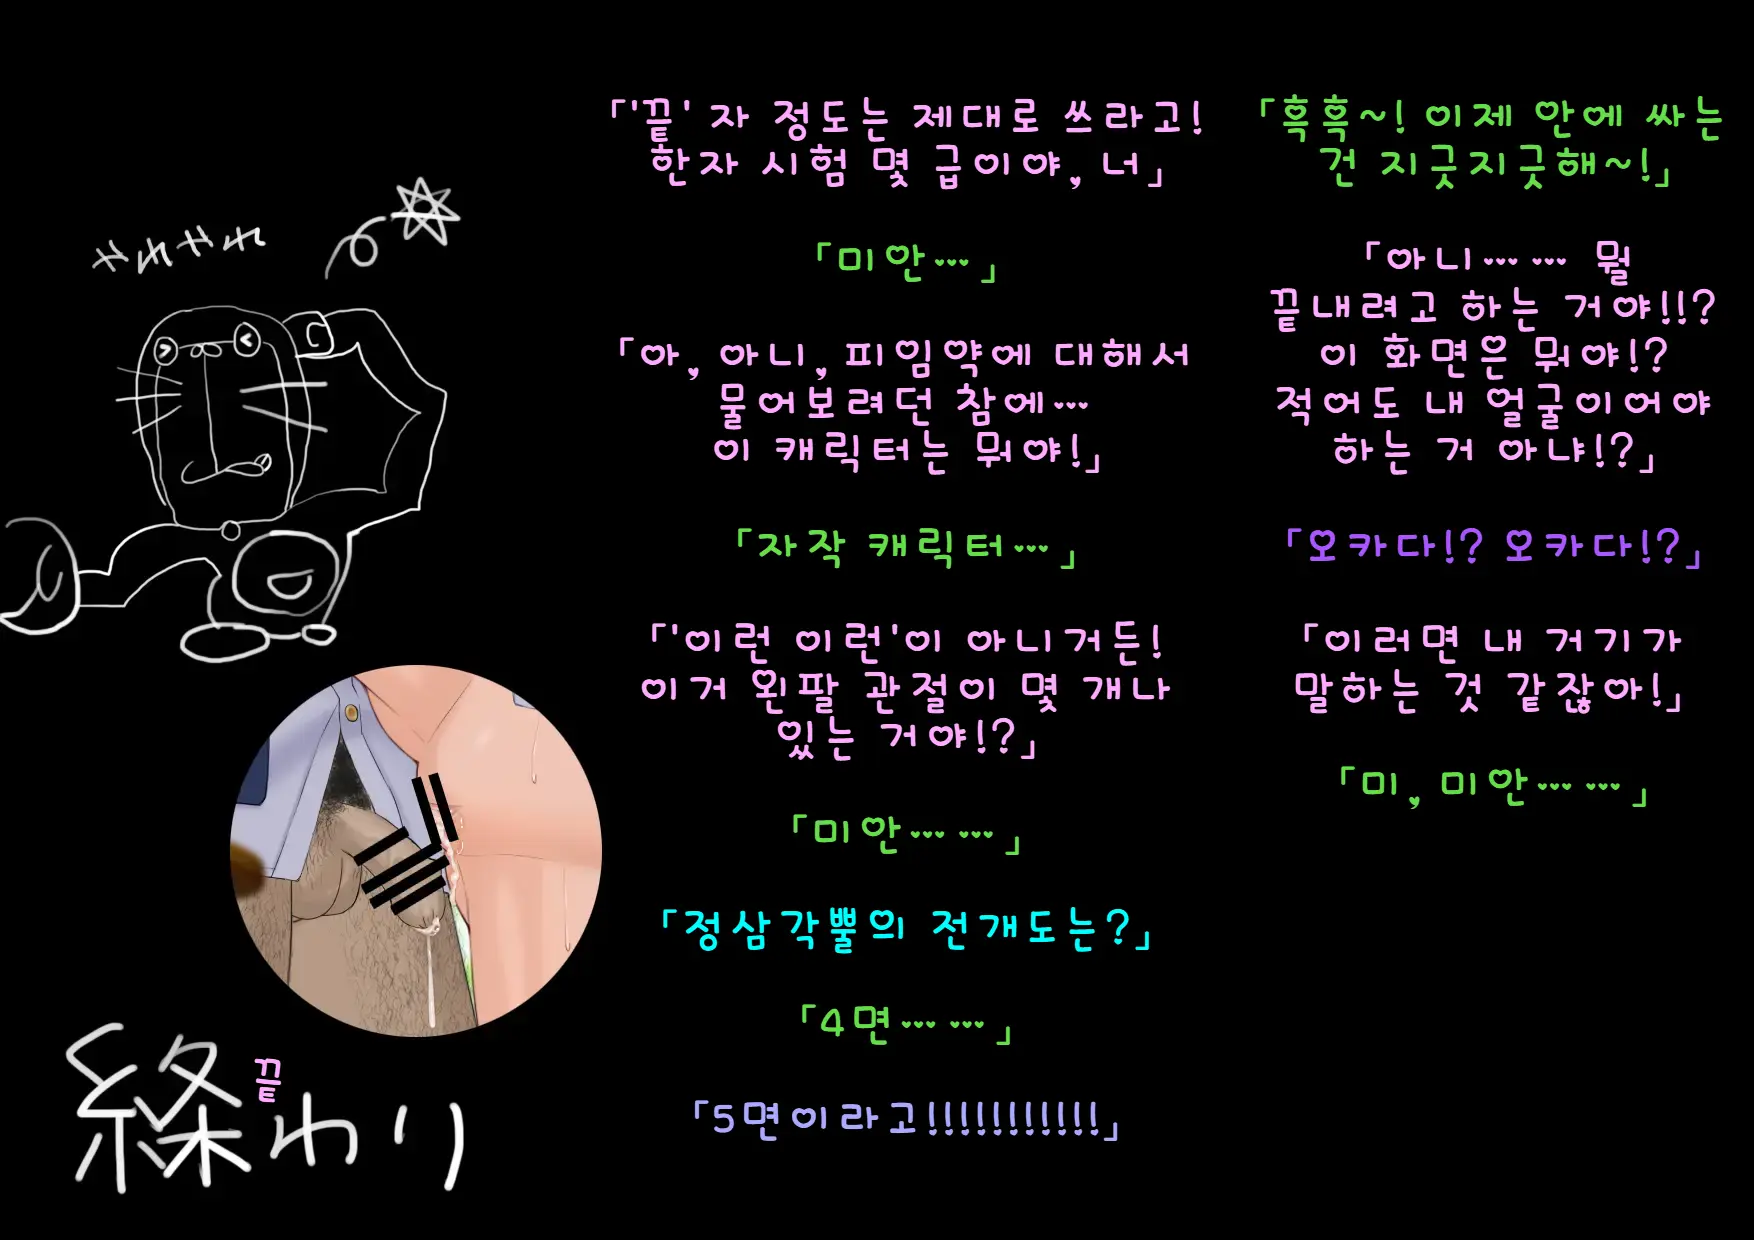 「흑흑~! 이제 안에 싸는
건 지긋지긋해~!」
「아니…… 뭘
끝내려고 하는 거야!!?
이 화면은 뭐야!?
적어도 내 얼굴이어야
하는 거 아냐!?」
「오카다!? 오카다!?」
「이러면 내 거기가
말하는 것 같잖아!」
「미, 미안……」
「'끝' 자 정도는 제대로 쓰라고!
한자 시험 몇 급이야, 너」
「미안…」
「아, 아니, 피임약에 대해서
물어보려던 참에…
이 캐릭터는 뭐야!」
「자작 캐릭터…」
「'이런 이런'이 아니거든!
이거 왼팔 관절이 몇 개나
있는 거야!?」
「미안……」
「정삼각뿔의 전개도는?」
「4면……」
「5면이라고!!!!!!!!!!!」
やれやれ
끝
終わり